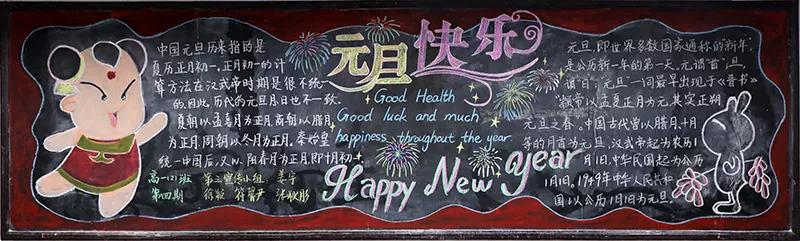 中国元旦历来指的是
夏历正月初一。正月初一的计
算方法在汉武帝时期是很不统一
的。因此,历代的元旦月日也不一致。
夏朝以孟喜月为正月,商朝以腊月
为正月,周朝以冬月为正月。秦始皇
统一中国后,又以阳春月为正月,即十月初一
高一(2)班 第三宣传小组
第四期
元旦快乐
Good Health
Good luck and much
happiness throughout the year
Happy New Year
元旦,即世界多数国家通称的“新年”,
是公历新年的第一天。元谓“首”,旦
谓“日”。“元旦”一词最早出现于《晋书》:
“颛帝以孟夏正月为元,其实正朔
元旦之春。”中国古代曾以腊月、十月
等的月首为元旦,汉武帝起为农历1
月1日,中华民国起为公历
1月1日。1949年中华人民共和
国以公历1月1日为元旦。